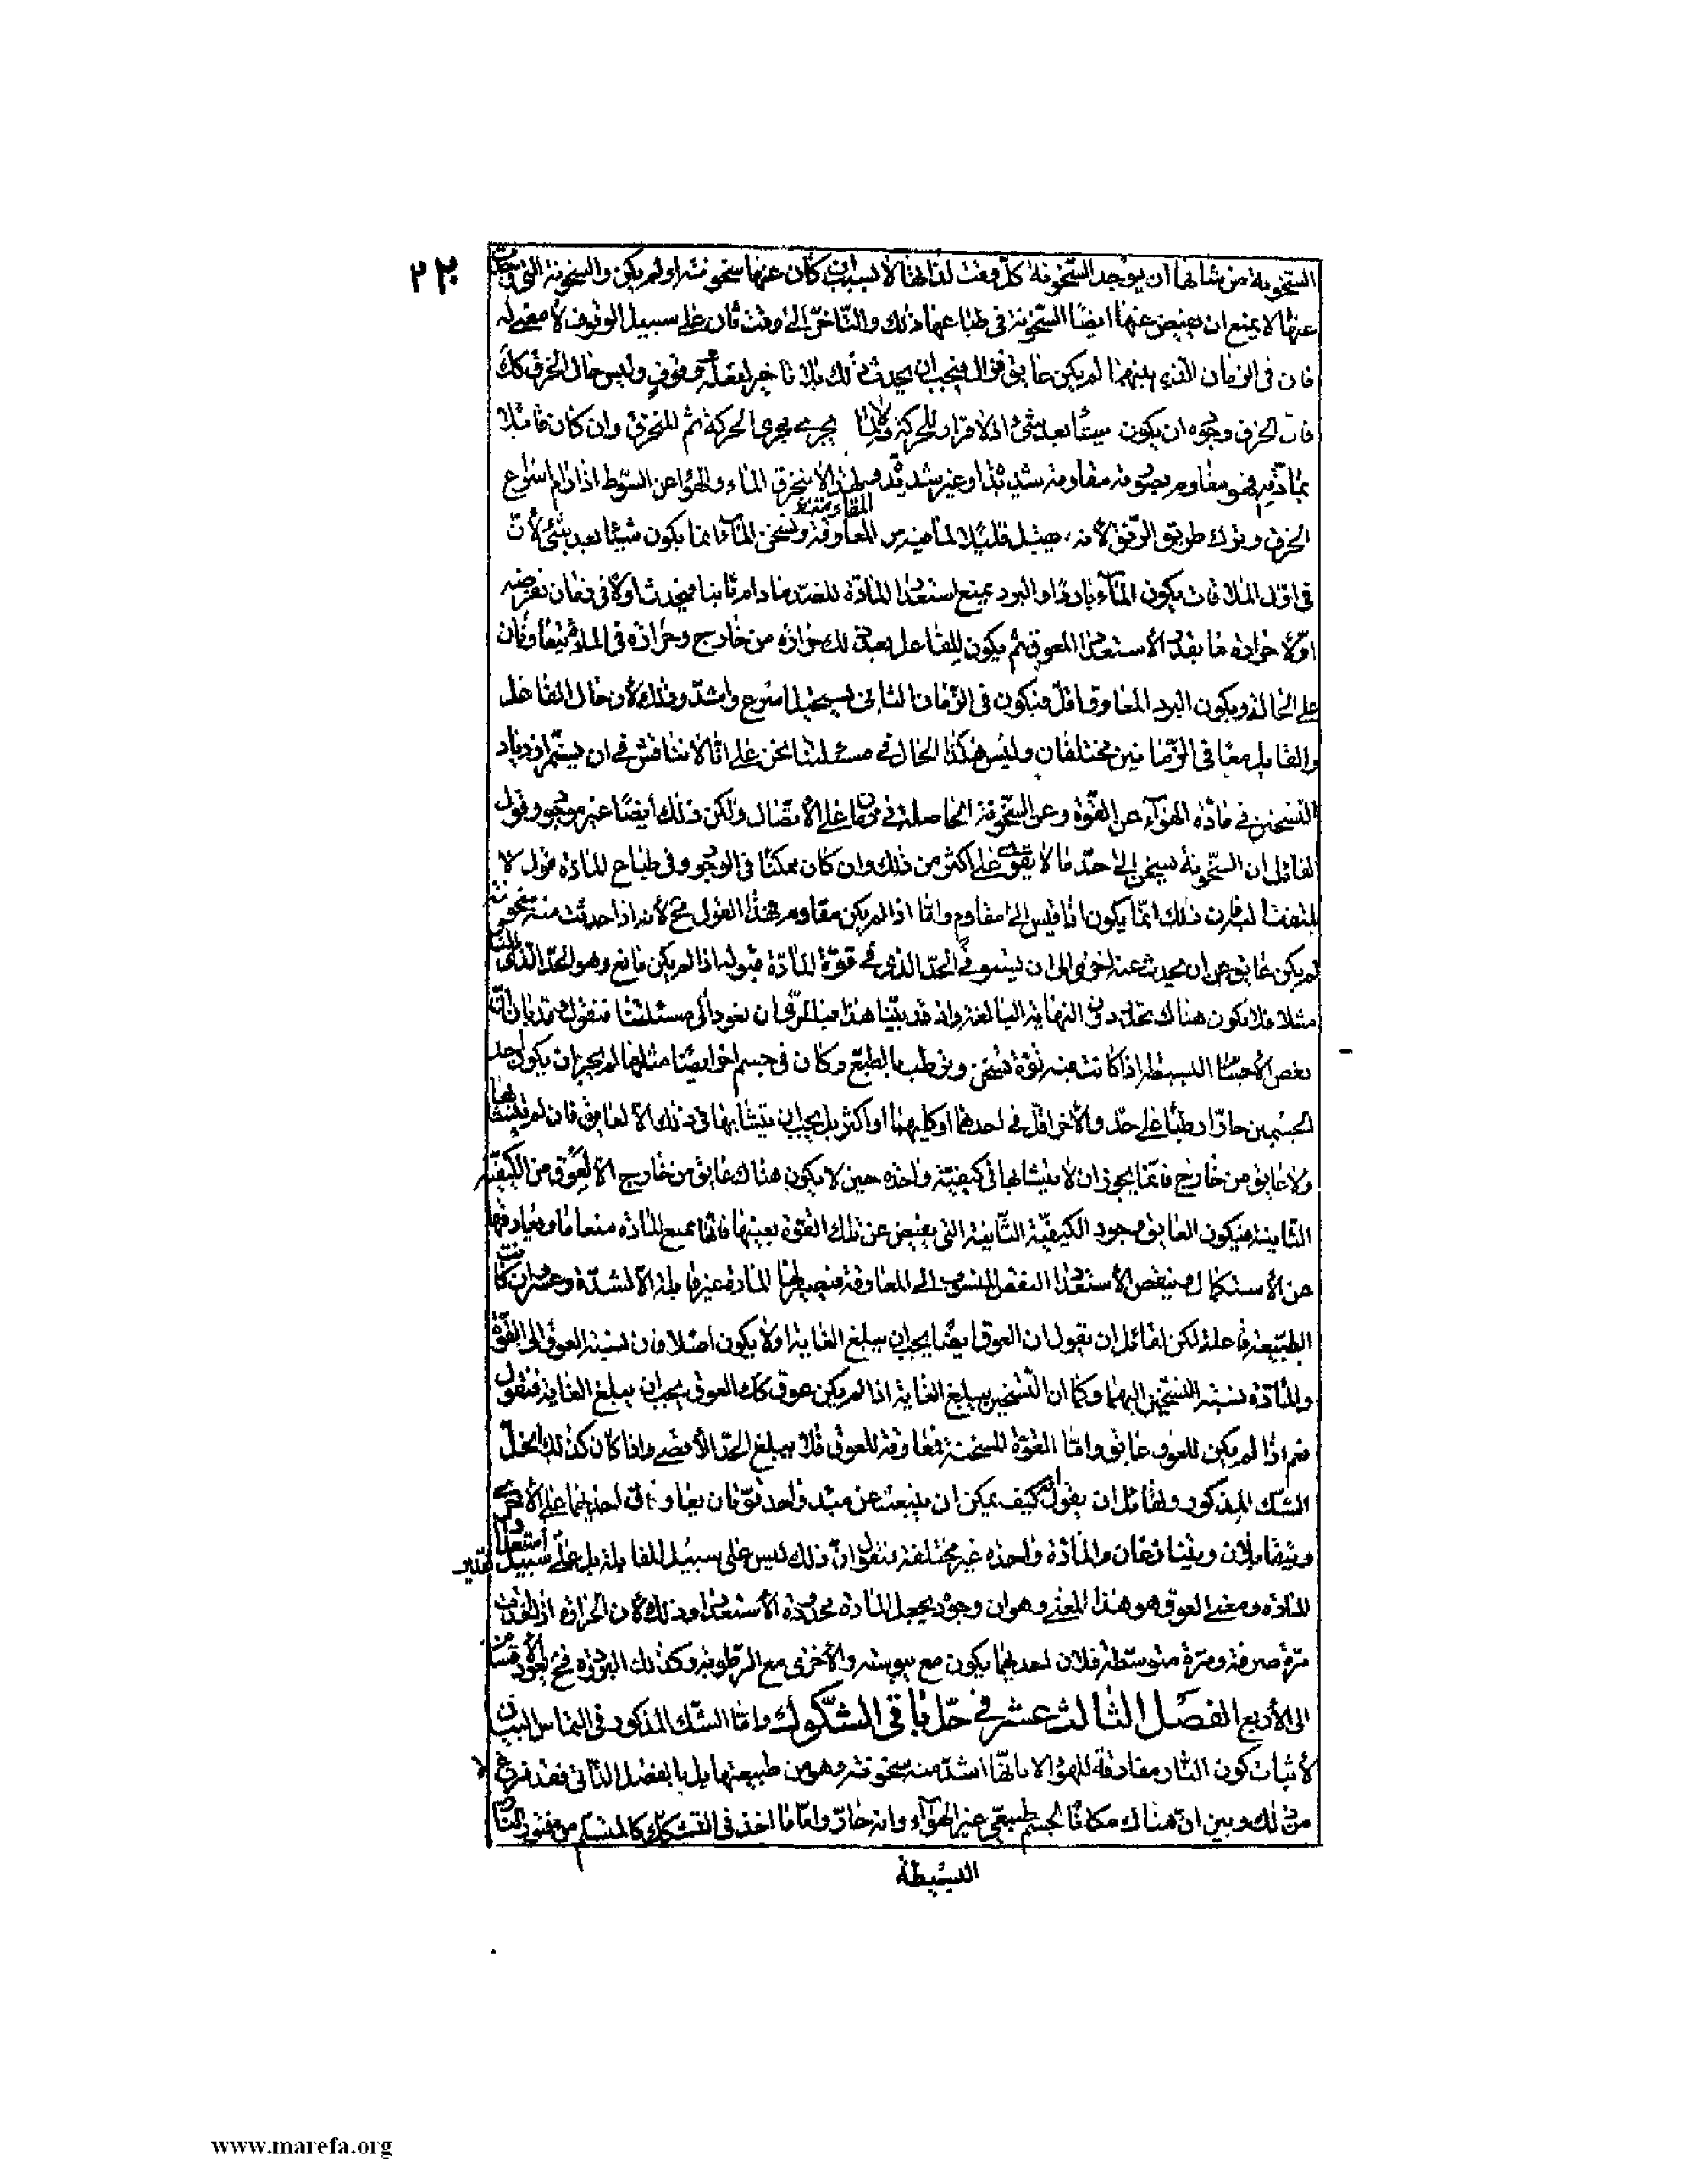 ٢٢٠
السخونة من شانها ان يوجد السخونة كل وقت لذاتها لا بسبب ان كان عنها سخونة او لم يكن والسخونة التى وجدت
عنها لا يمنع ان يفيض عنها ايضا السخونة فى طباعها ذلك والتاخر الى وقت ثان على سبيل الوقوف لا معنى له
فان فى الزمان الذى بينهما لم يكن عايق فيجب ان يحدث ذلك بلا تاخير وليس حال الخرق كك
فان الخرق وجوده ان يكون شيئا بعد شئ اذ لا قرار للحركة يجرى مجرى الحركة ثم للمنخرق وان كان قابلا
بمادته فهو مقاوم بصورته مقاومة شديدة او غير شديدة ولهذا لا ينخرق الماء والهواء عن السوط اذا رام اسراع
الخرق وترك طريق الرفق لانه قليلا لما فيه من المعاوقة وتسخن الماء انما يكون شيئا بعد شئ لان
فى اول الملاقات يكون الماء باردا والبرد يمنع استعداد المادة للضد ما دام ثابتا فيحدث اولا فى زمان نفرضه
اولا حرارة ما بقدر الاستعداد المعوق ثم يكون للفاعل بعد ذلك حرارة من خارج وحرارة فى الماء يتعاونان
على الحالة ويكون البرد المعاوق اقل فيكون فى الزمان الثانى يستحيل اسرع واشد وذلك لان حال الفاعل
والقابل معا فى الزمانين مختلفان وليس هكذا الحال فى مسئلتنا نحن على انا لا نناقش فى ان يستمر ازدياد
التسخين فى مادة الهواء عن القوة وعن السخونة الحاصلة فى زمان ما على الاتصال ولكن ذلك ايضا غير موجود وقول
القائل ان السخونة تسخن الى حد ما لا يقوى على اكثر من ذلك وان كان ممكنا فى الوجود وفى طباع المادة قول لا
يلتفت اليه فان ذلك انما يكون اذا قيس الى مقاوم واما اذا لم يكن مقاوم فهذا القول مح لانه اذا حدثت منه سخونة
لم يكن عايق عن ان يحدث عنه اخرى الى ان يستوفى الحد الذى فى قوة المادة قبوله اذا لم يكن مانع وهو الحد الذى للنار
مثلا فلا يكون هناك تحدد دون النهاية البالغة واذ قد بينا هذا فبالحرى ان نعود الى مسئلتنا فنقول قد بان ان
بعض الاجسام البسيطة اذا كانت فيه قوة تسخن وترطب بالطبع وكان فى جسم اخر ايضا مثلها لم يجز ان يكون احد
الجسمين حارا رطبا على حد والاخر اقل فى احدهما او كليهما او اكثر بل يجب ان يتشابها فى ذلك الا لعايق فان لم يتشابها
ولا عايق من خارج فانما يجوز ان لا يتشابها فى كيفية واحدة حين لا يكون هناك عايق من خارج الا لعوق من الكيفية
الثانية فيكون العايق وجود الكيفية الثانية التى يفيض عن تلك القوة بعينها فانها تمنع المادة منعا ما ويعاوقها
عن الاستكمال فينقص الاستعداد النقص المنسوب الى المعاوقة فيصير لها المادة غير قابلة الا لشدة وعسر وان كانت
الطبيعة فاعلة لكن لقائل ان يقول ان العوق ايضا يجب ان يبلغ الغاية او لا يكون اصلا فان نسبة العوق الى القوة
والمادة نسبة التسخين اليهما وكما ان التسخين يبلغ الغاية اذا لم يكن عوق كك العوق يجب ان يبلغ الغاية فنقول
نعم اذا لم يكن للعوق عايق واما القوة المسخنة فمعاوقة للعوق فلا يبلغ الحد الاقصى واذا كان كذلك انحل
الشك المذكور ولقائل ان يقول كيف يمكن ان ينبعث عن مبدء واحد قوتان يعاوق احديهما على الاخرى
ويتقابلان ويتنازعان والمادة واحدة غير مختلفة فنقول ان ذلك ليس على سبيل المقابلة بل على سبيل
المادة ومعنى العوق هو هذا المعنى وهو ان وجود يجعل المادة محدودة الاستعداد وذلك لان الحرارة اذا اخذت
مرة صرفة ومرة متوسطة فلان احديهما يكون مع يبوسة والاخرى مع الرطوبة وكذلك البرودة فح يعود الاقسام
الى الاربع الفصل الثالث عشر فى حل باقى الشكوك واما الشك المذكور فى التماس البيان
لاثبات كون النار مفارقة للهواء لا بانها اشد منه سخونة وهو من طبيعتها بل بالفصل الذاتى فقد فرغ
من ذلك وبين ان هناك مكانا لجسم طبيعى غير الهواء وانه حار واما ما اخذ فى التشكك كالمتسلم من فتور النار
البسيطة
www.marefa.org